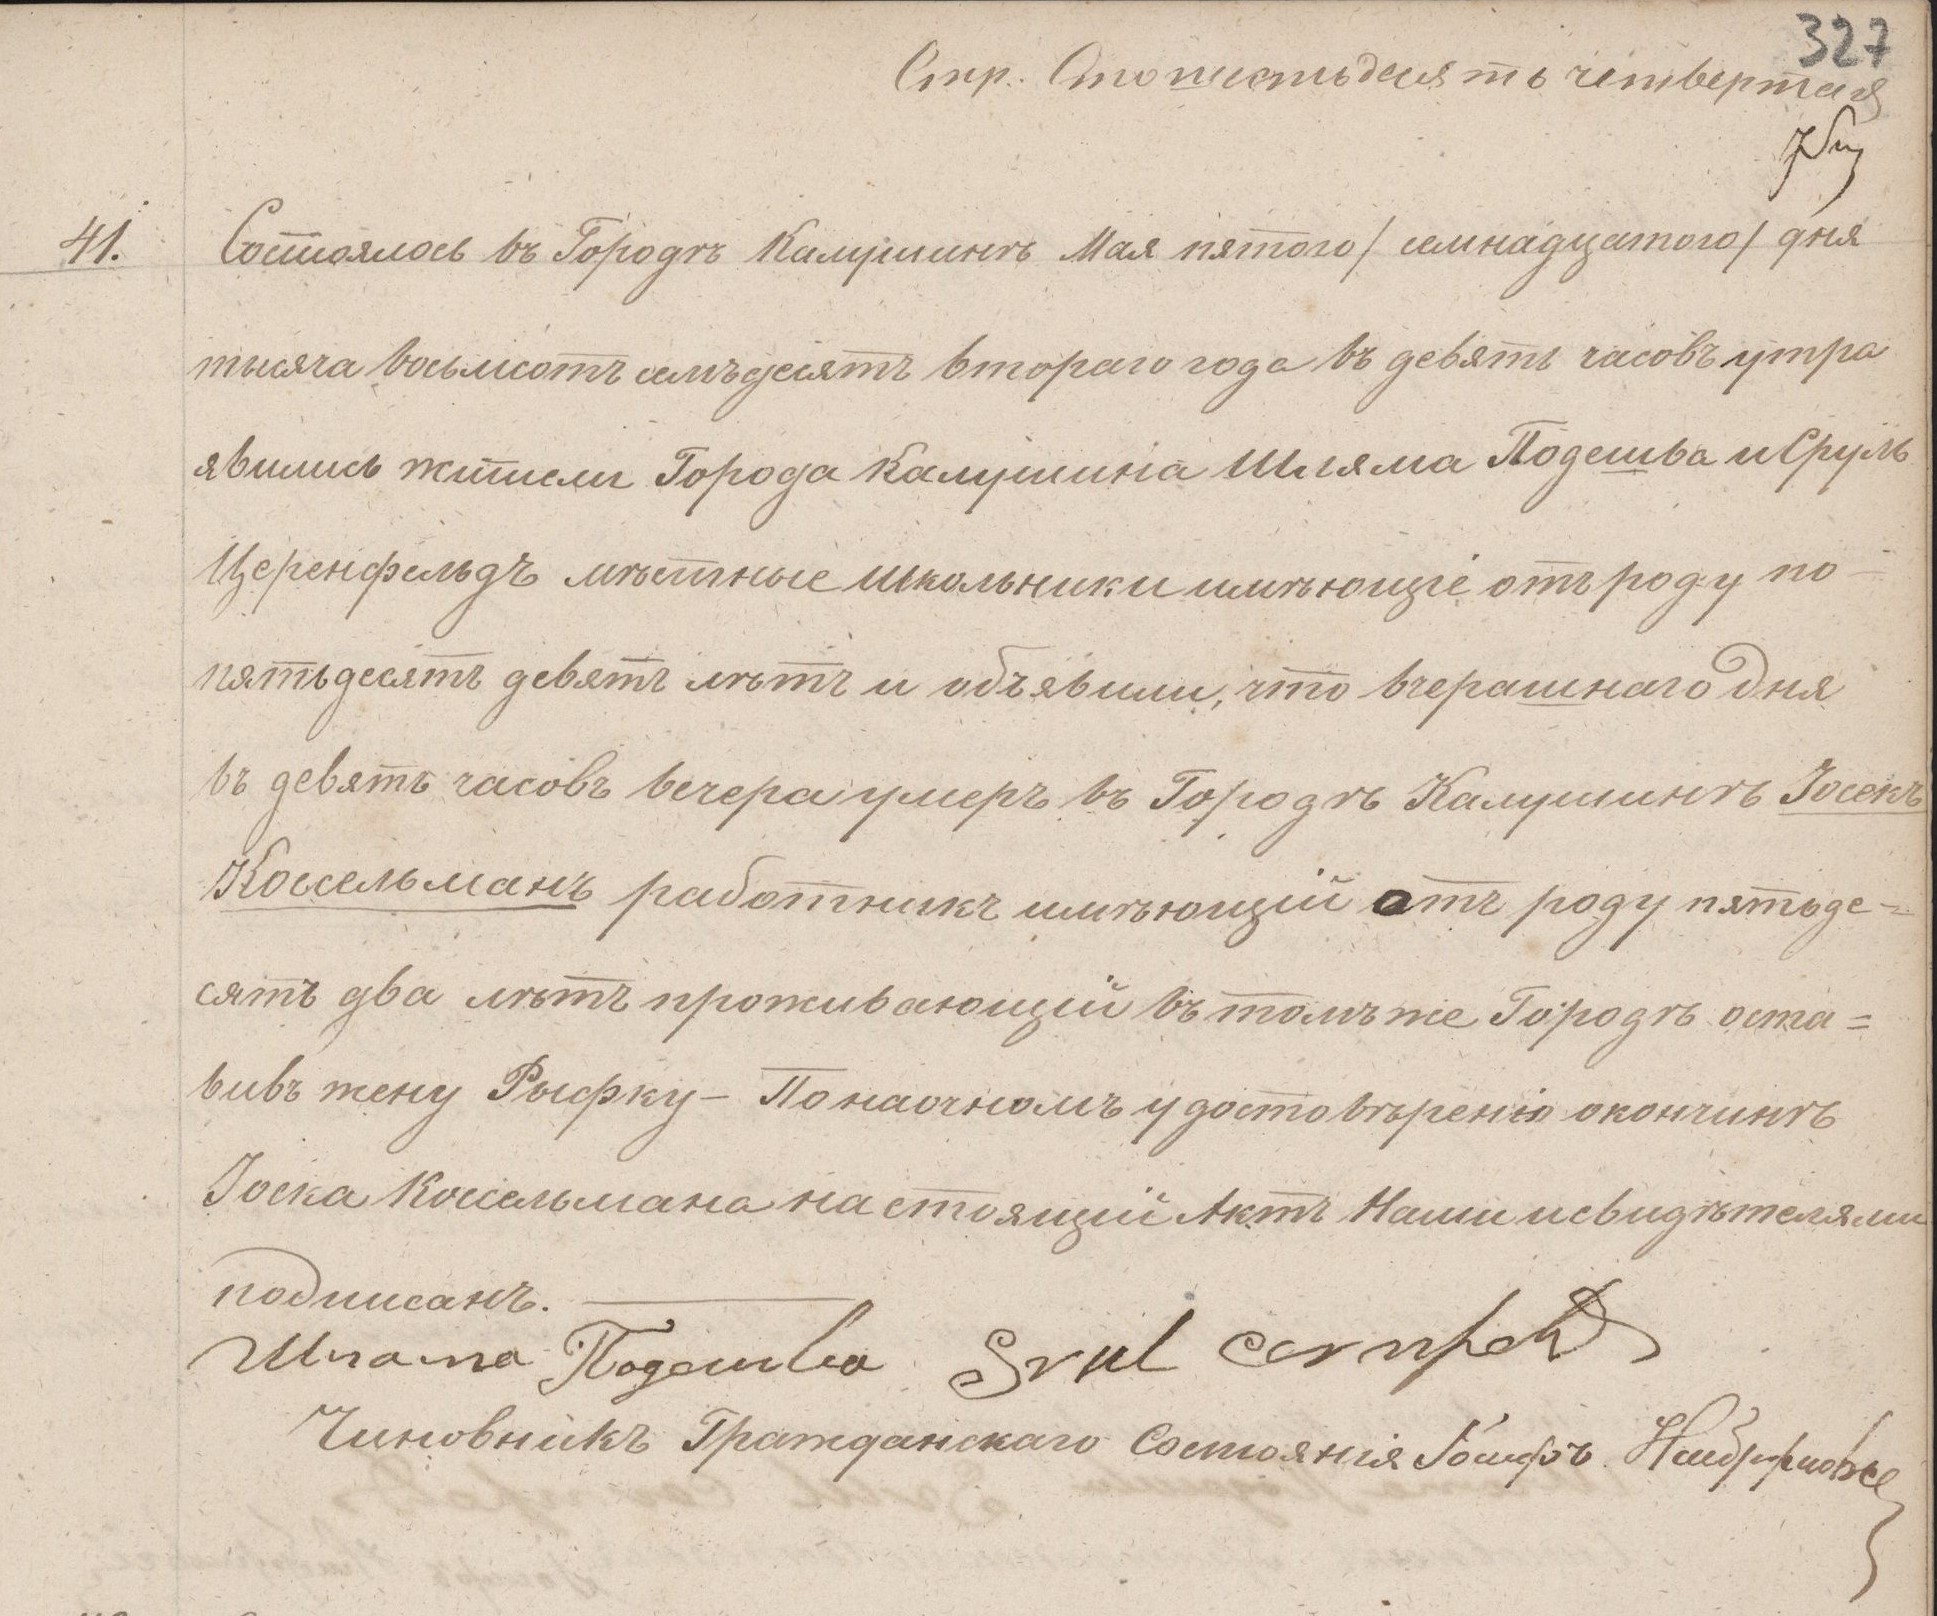 327
Стр. Сто шестьдесятъ четвертая
41.
Состоялось въ Городѣ Калушинѣ Мая пятого / семнадцатого / дня
тысяча восьмсотъ семъдесятъ втораго года въ девять часовъ утра
явились жители Города Калушина Шляма Подешва и Сруль
Церенфельдъ мѣстные школьники имѣющіе отъ роду по
пятьдесятъ девять лѣтъ и объявили, что вчерашнаго дня
въ девять часовъ вечера умеръ въ Городѣ Калушинѣ Іосекъ
Коссельманъ работникъ имѣющій отъ роду пятьде-
сятъ два лѣтъ проживающій въ томъ же Городѣ оста=
вивъ жену Рыфку – По наочномъ удостовѣренію окончинѣ
Іоска Коссельмана настоящій Актъ Нами и свидѣтелями
подписанъ.
Шлама Подешва Srul
Чиновникъ Гражданскаго Состоянія